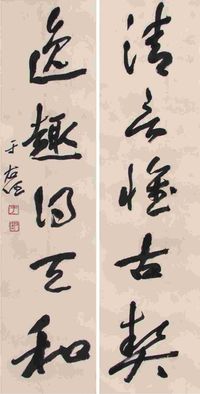 清言古契
逸趣得天和
于右任